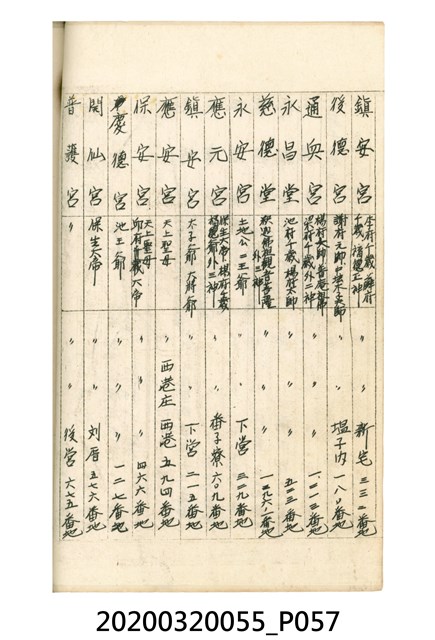 鎮安宮 李府千歲 薛府千歲 福德正神 〃 〃 新宅 三三二番地
後德宮 謝府元帥 〃 〃 塭子內 一八〇番地
通興宮 楊府太師 普庵祖師 梁府千歲 外二神 〃 〃 〃 一〇一三番地
永昌堂 池府千歲 楊府太師 〃 〃 〃 五〇三番地
慈德堂 釋迦佛 觀音菩薩 外三神 〃 〃 〃 一二九六ノ一番地
永安宮 土地公 二王爺 〃 〃 下營 三二九番地
應元宮 保生大帝 楊府千歲 楊德爺 外三神 〃 〃 番子寮 六〇九番地
鎮安宮 太子爺 大將爺 〃 〃 下營 二一五番地
應安宮 天上聖母 〃 西港庄 西港 五九四番地
保安宮 天上聖母 邱府千歲 大帝 〃 〃 〃 四六六番地
慶德宮 池王爺 〃 〃 〃 一二七番地
開仙宮 保生大帝 〃 〃 劉厝 五七六番地
普護宮 〃 〃 〃 後營 六七五番地
20200320055_P057